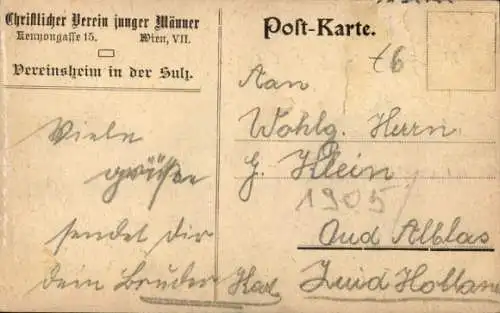 Christlicher Verein junger Männer
Kenyongasse 15. Wien, VII.
Vereinsheim in der Sulz.
Viele
grüsse
sendet dir
dein Bruder Karl
Post-Karte.
Aan
Wohlg. Herrn
G. Klein
1905
Oud Alblas
Zuid Holland